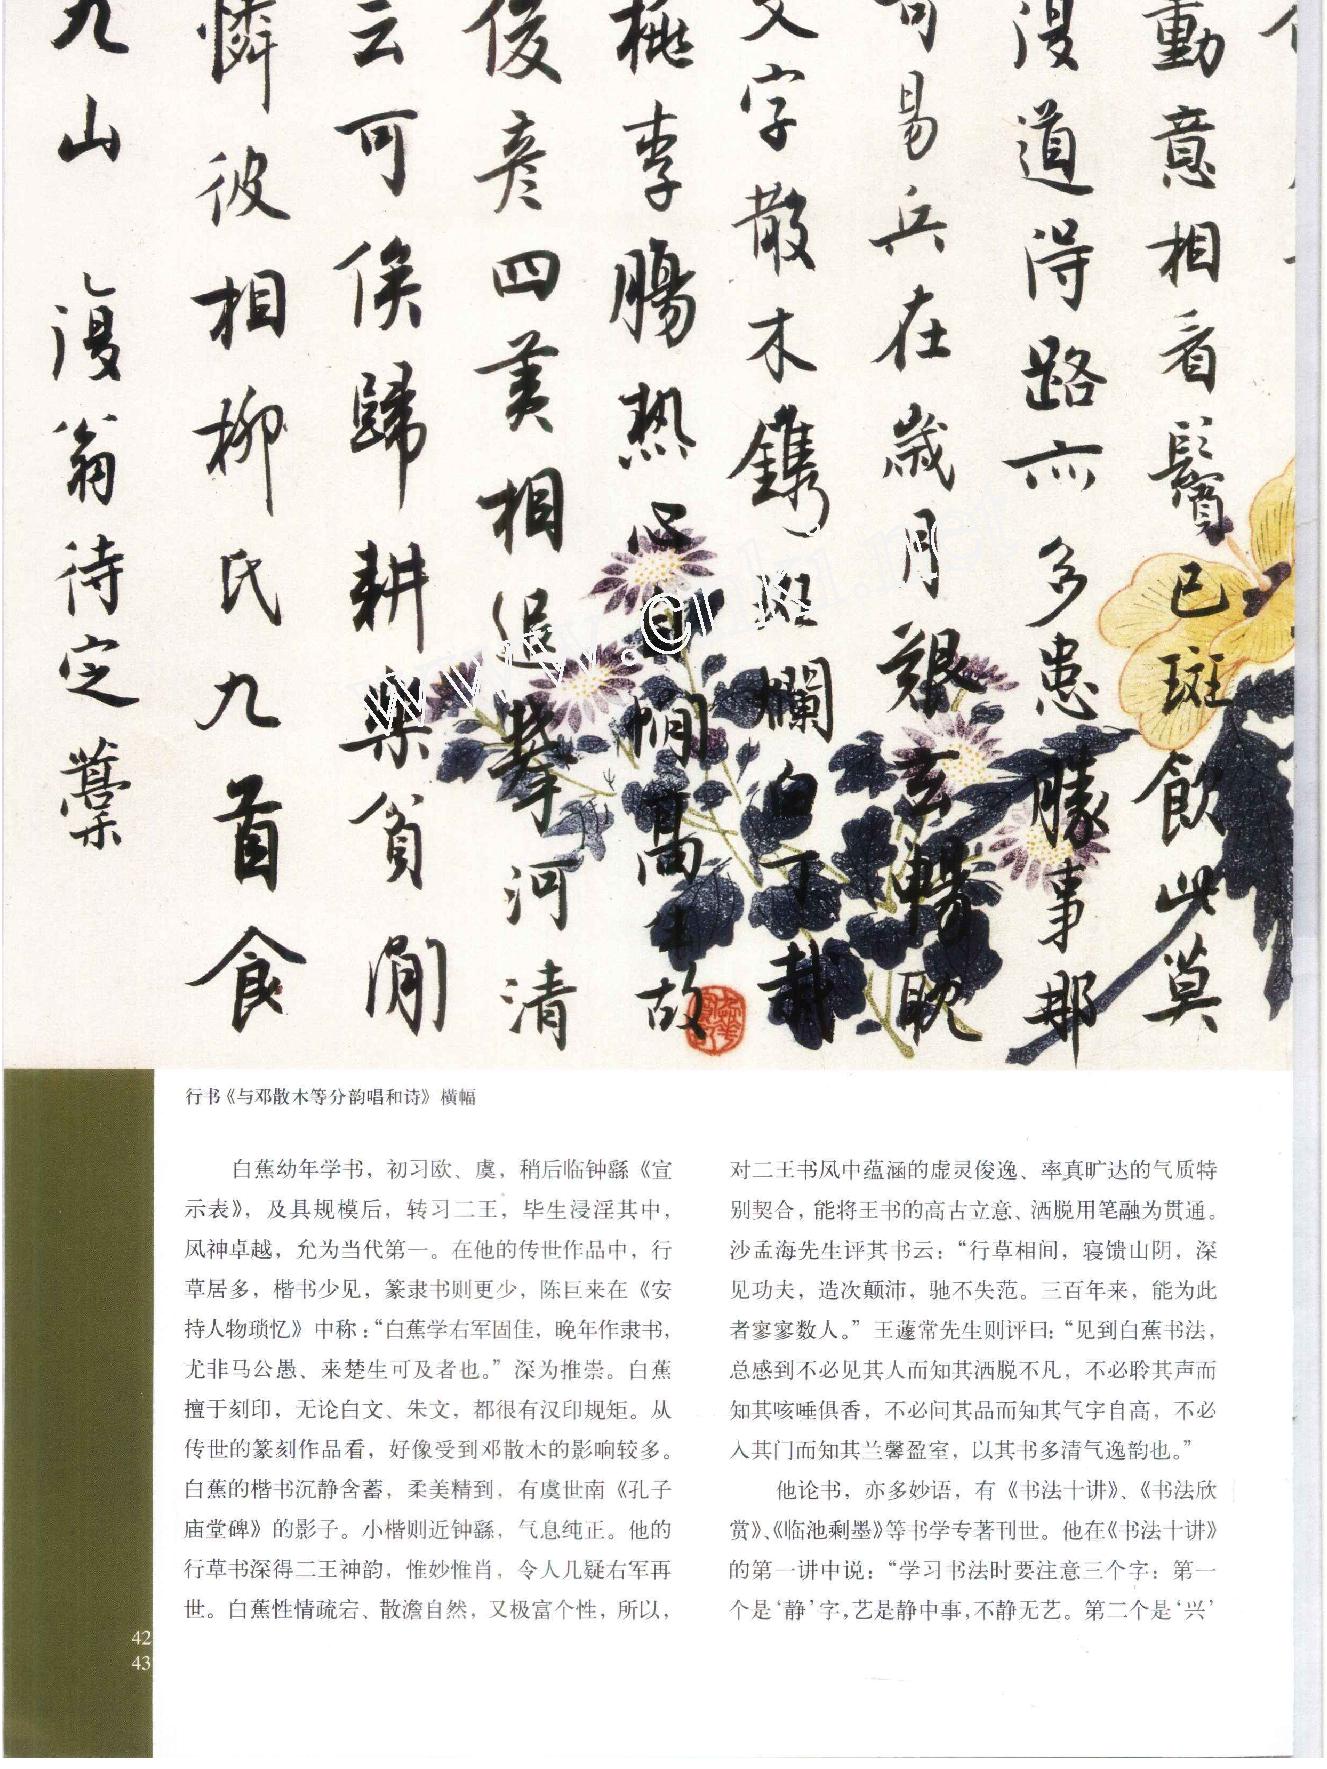 動意相看鬢已斑飲此莫
漫道得路亦多患勝事那
易兵在歲月艱玄暢耽
文字散木鐫斑斕白丁哉
桃李腸热心自惆高生故
俊彦四美相退攀河清
云可俟歸耕樂貧閒
憐彼相柳氏九首食
九山 復翁待定藁
www.cnki.net
行书《与邓散木等分韵唱和诗》横幅
白蕉幼年学书，初习欧、虞，稍后临钟繇《宣
示表》，及具规模后，转习二王，毕生浸淫其中，
风神卓越，允为当代第一。在他的传世作品中，行
草居多，楷书少见，篆隶书则更少，陈巨来在《安
持人物琐忆》中称：“白蕉学右军固佳，晚年作隶书，
尤非马公愚、来楚生可及者也。”深为推崇。白蕉
擅于刻印，无论白文、朱文，都很有汉印规矩。从
传世的篆刻作品看，好像受到邓散木的影响较多。
白蕉的楷书沉静含蓄，柔美精到，有虞世南《孔子
庙堂碑》的影子。小楷则近钟繇，气息纯正。他的
行草书深得二王神韵，惟妙惟肖，令人几疑右军再
世。白蕉性情疏宕、散澹自然，又极富个性，所以，
对二王书风中蕴涵的虚灵俊逸、率真旷达的气质特
别契合，能将王书的高古立意、洒脱用笔融为贯通。
沙孟海先生评其书云：“行草相间，寝馈山阴，深
见功夫，造次颠沛，驰不失范。三百年来，能为此
者寥寥数人。”王蘧常先生则评曰：“见到白蕉书法，
总感到不必见其人而知其洒脱不凡，不必聆其声而
知其咳唾俱香，不必问其品而知其气宇自高，不必
入其门而知其兰馨盈室，以其书多清气逸韵也。”
他论书，亦多妙语，有《书法十讲》、《书法欣
赏》、《临池剩墨》等书学专著刊世。他在《书法十讲》
的第一讲中说：“学习书法时要注意三个字：第一
个是‘静’字，艺是静中事，不静无艺。第二个是‘兴’
42
43